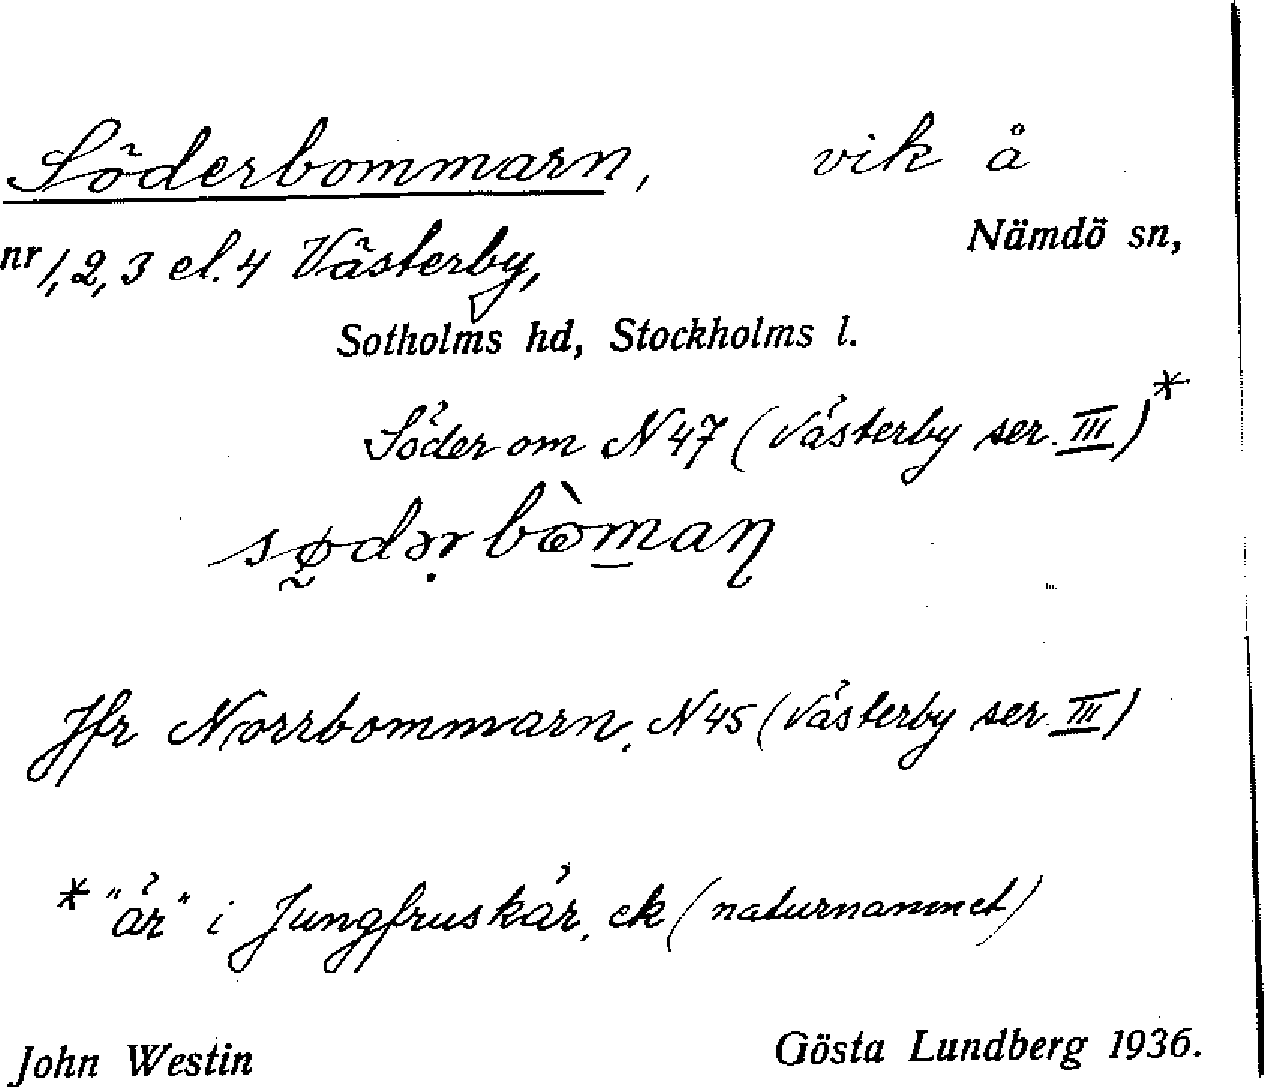 Söderbommarn, vik å
nr 1, 2, 3 el. 4 Västerby, Nämdö sn,
Sotholms hd, Stockholms l.
Söder om N 47 (Västerby ser. III)*
sø̰dər̩bὼm̲aɳ
Jfr Norrbommarn, N 45 (Västerby ser. III)
* "är" i Jungfruskär, ek (naturnamnet)
John Westin Gösta Lundberg 1936.